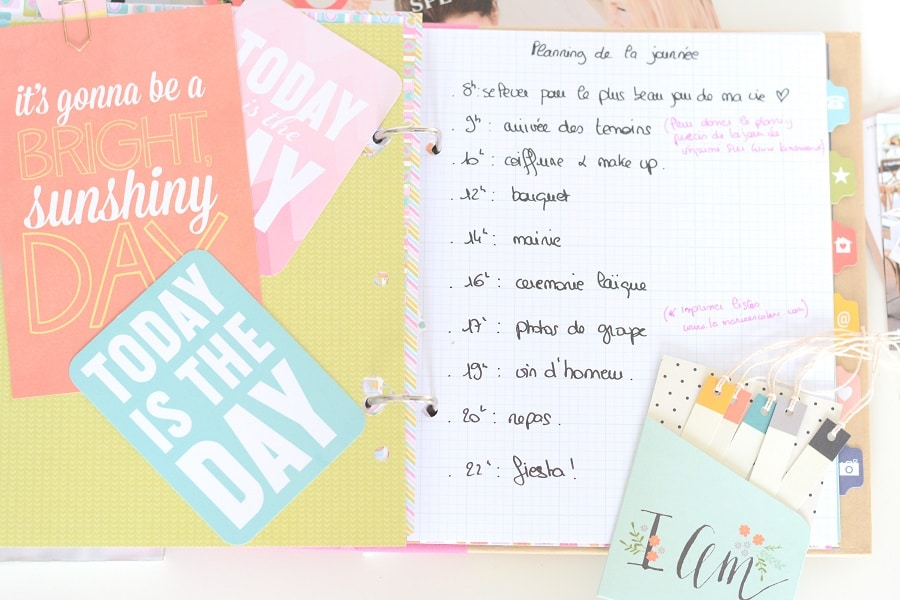 it's gonna be a
BRIGHT,
sunshiny
DAY
TODAY
is the
DAY
TODAY
IS THE
DAY
SPE
Planning de la journée
. 8h: se lever pour le plus beau jour de ma vie ♡
. 9h : arrivée des temoins
(Pour donner le planning
de la jour
imprimé sur www.
. 10h : coiffure & make up.
. 12h : bouquet
. 14h : mairie
. 16h : ceremonie laïque
. 17h : photos de groupe
(imprimer listes
www.la
. 19h : vin d'honneur.
. 20h : repas.
. 22h : fiesta!
@
I am